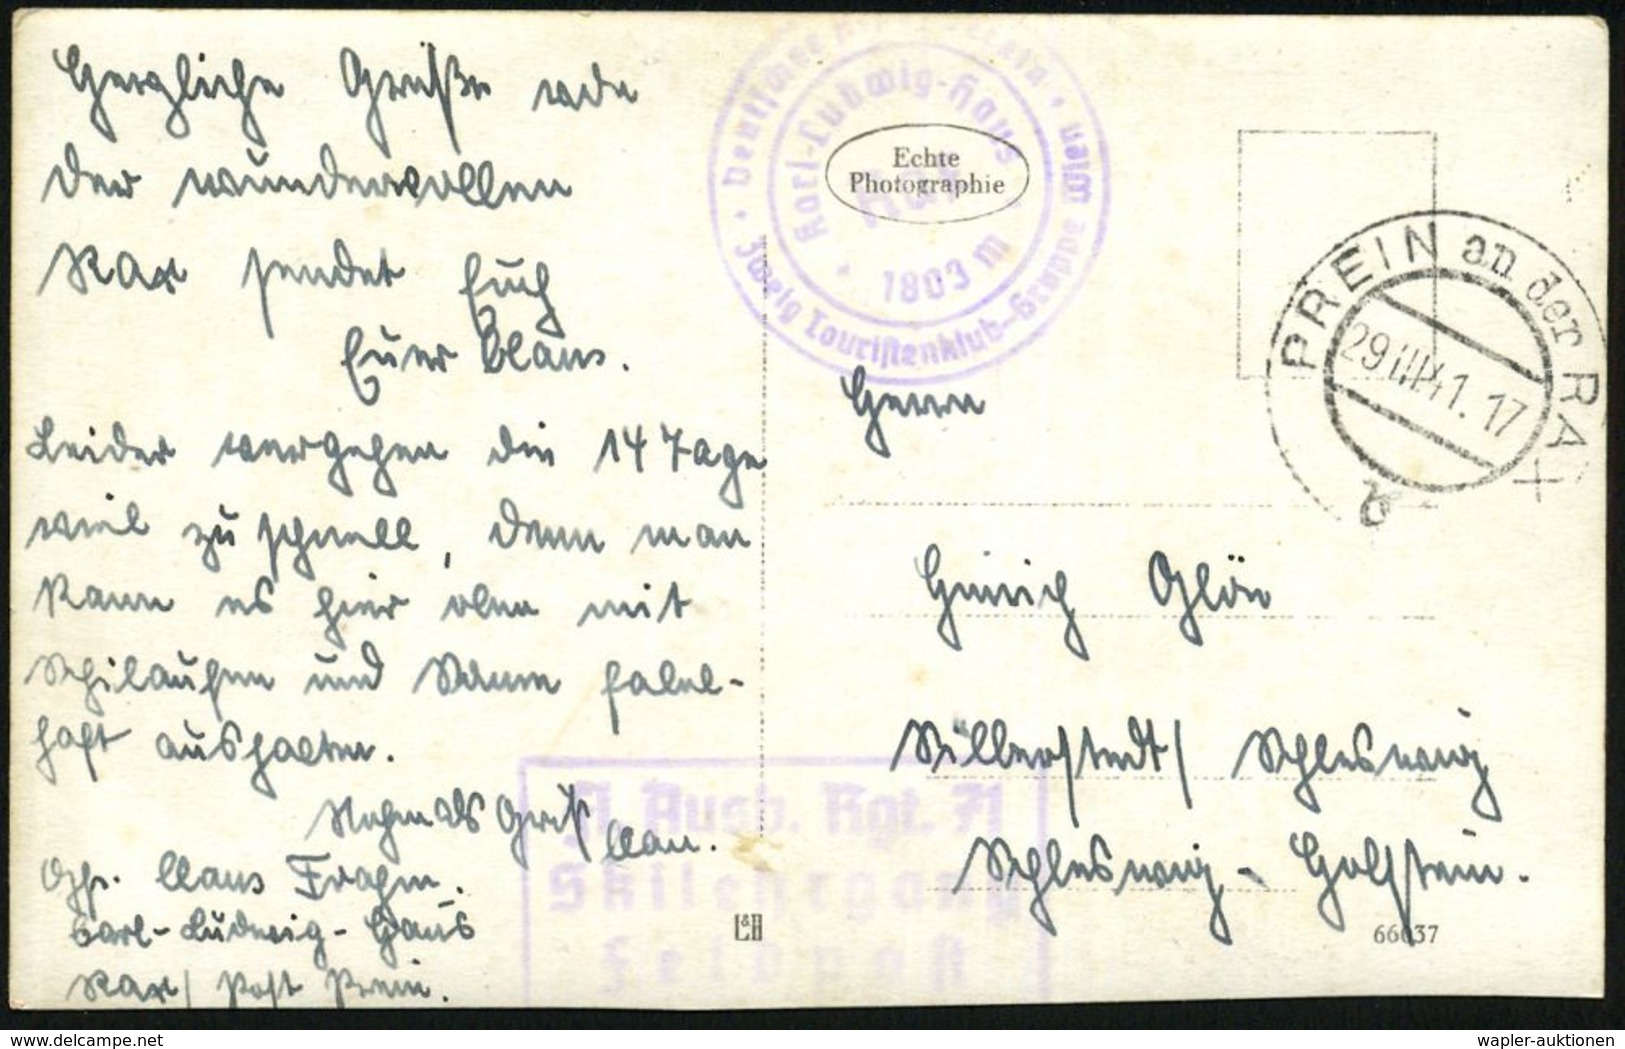 Herzliche Grüße von
der wundervollen
Rax sendet Euch
Euer Claus.
Leider vergehen die 14 Tage
viel zu schnell, denn man
kann es hier oben mit
Schilaufen und Sonne fabel-
haft aushalten.
Nochmals Gruß
Claus.
Gfr. Claus Frahm.
Carl-Ludwig-Haus
Rax / Post Prein.
Deutscher Alpenverein
Zweig Touristenklub-Gruppe Wien
Karl-Ludwig-Haus
Rax
1803 m
Echte
Photographie
PREIN an der RAX
29.III.41.17
b
Herrn
Hinrich
Silberstedt / Schleswig
Schleswig-Holstein.
Fl. Ausb. Rgt. 71
Skilehrgang
Feldpost
L&H
66037
wapler-auktionen.com
wapler-auktionen